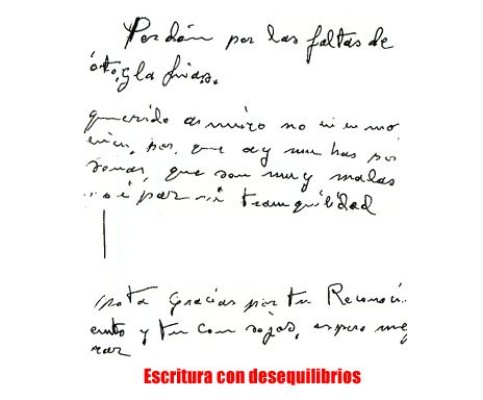 Perdón por las faltas de
órto,gla fias.
querido
no
por, que ay muchas per
sonas, que son muy malas
par mi tranquilidad
nota Gracias por tu Reconoci
ento y tu con sejos, espero me
rar
Escritura con desequilibrios